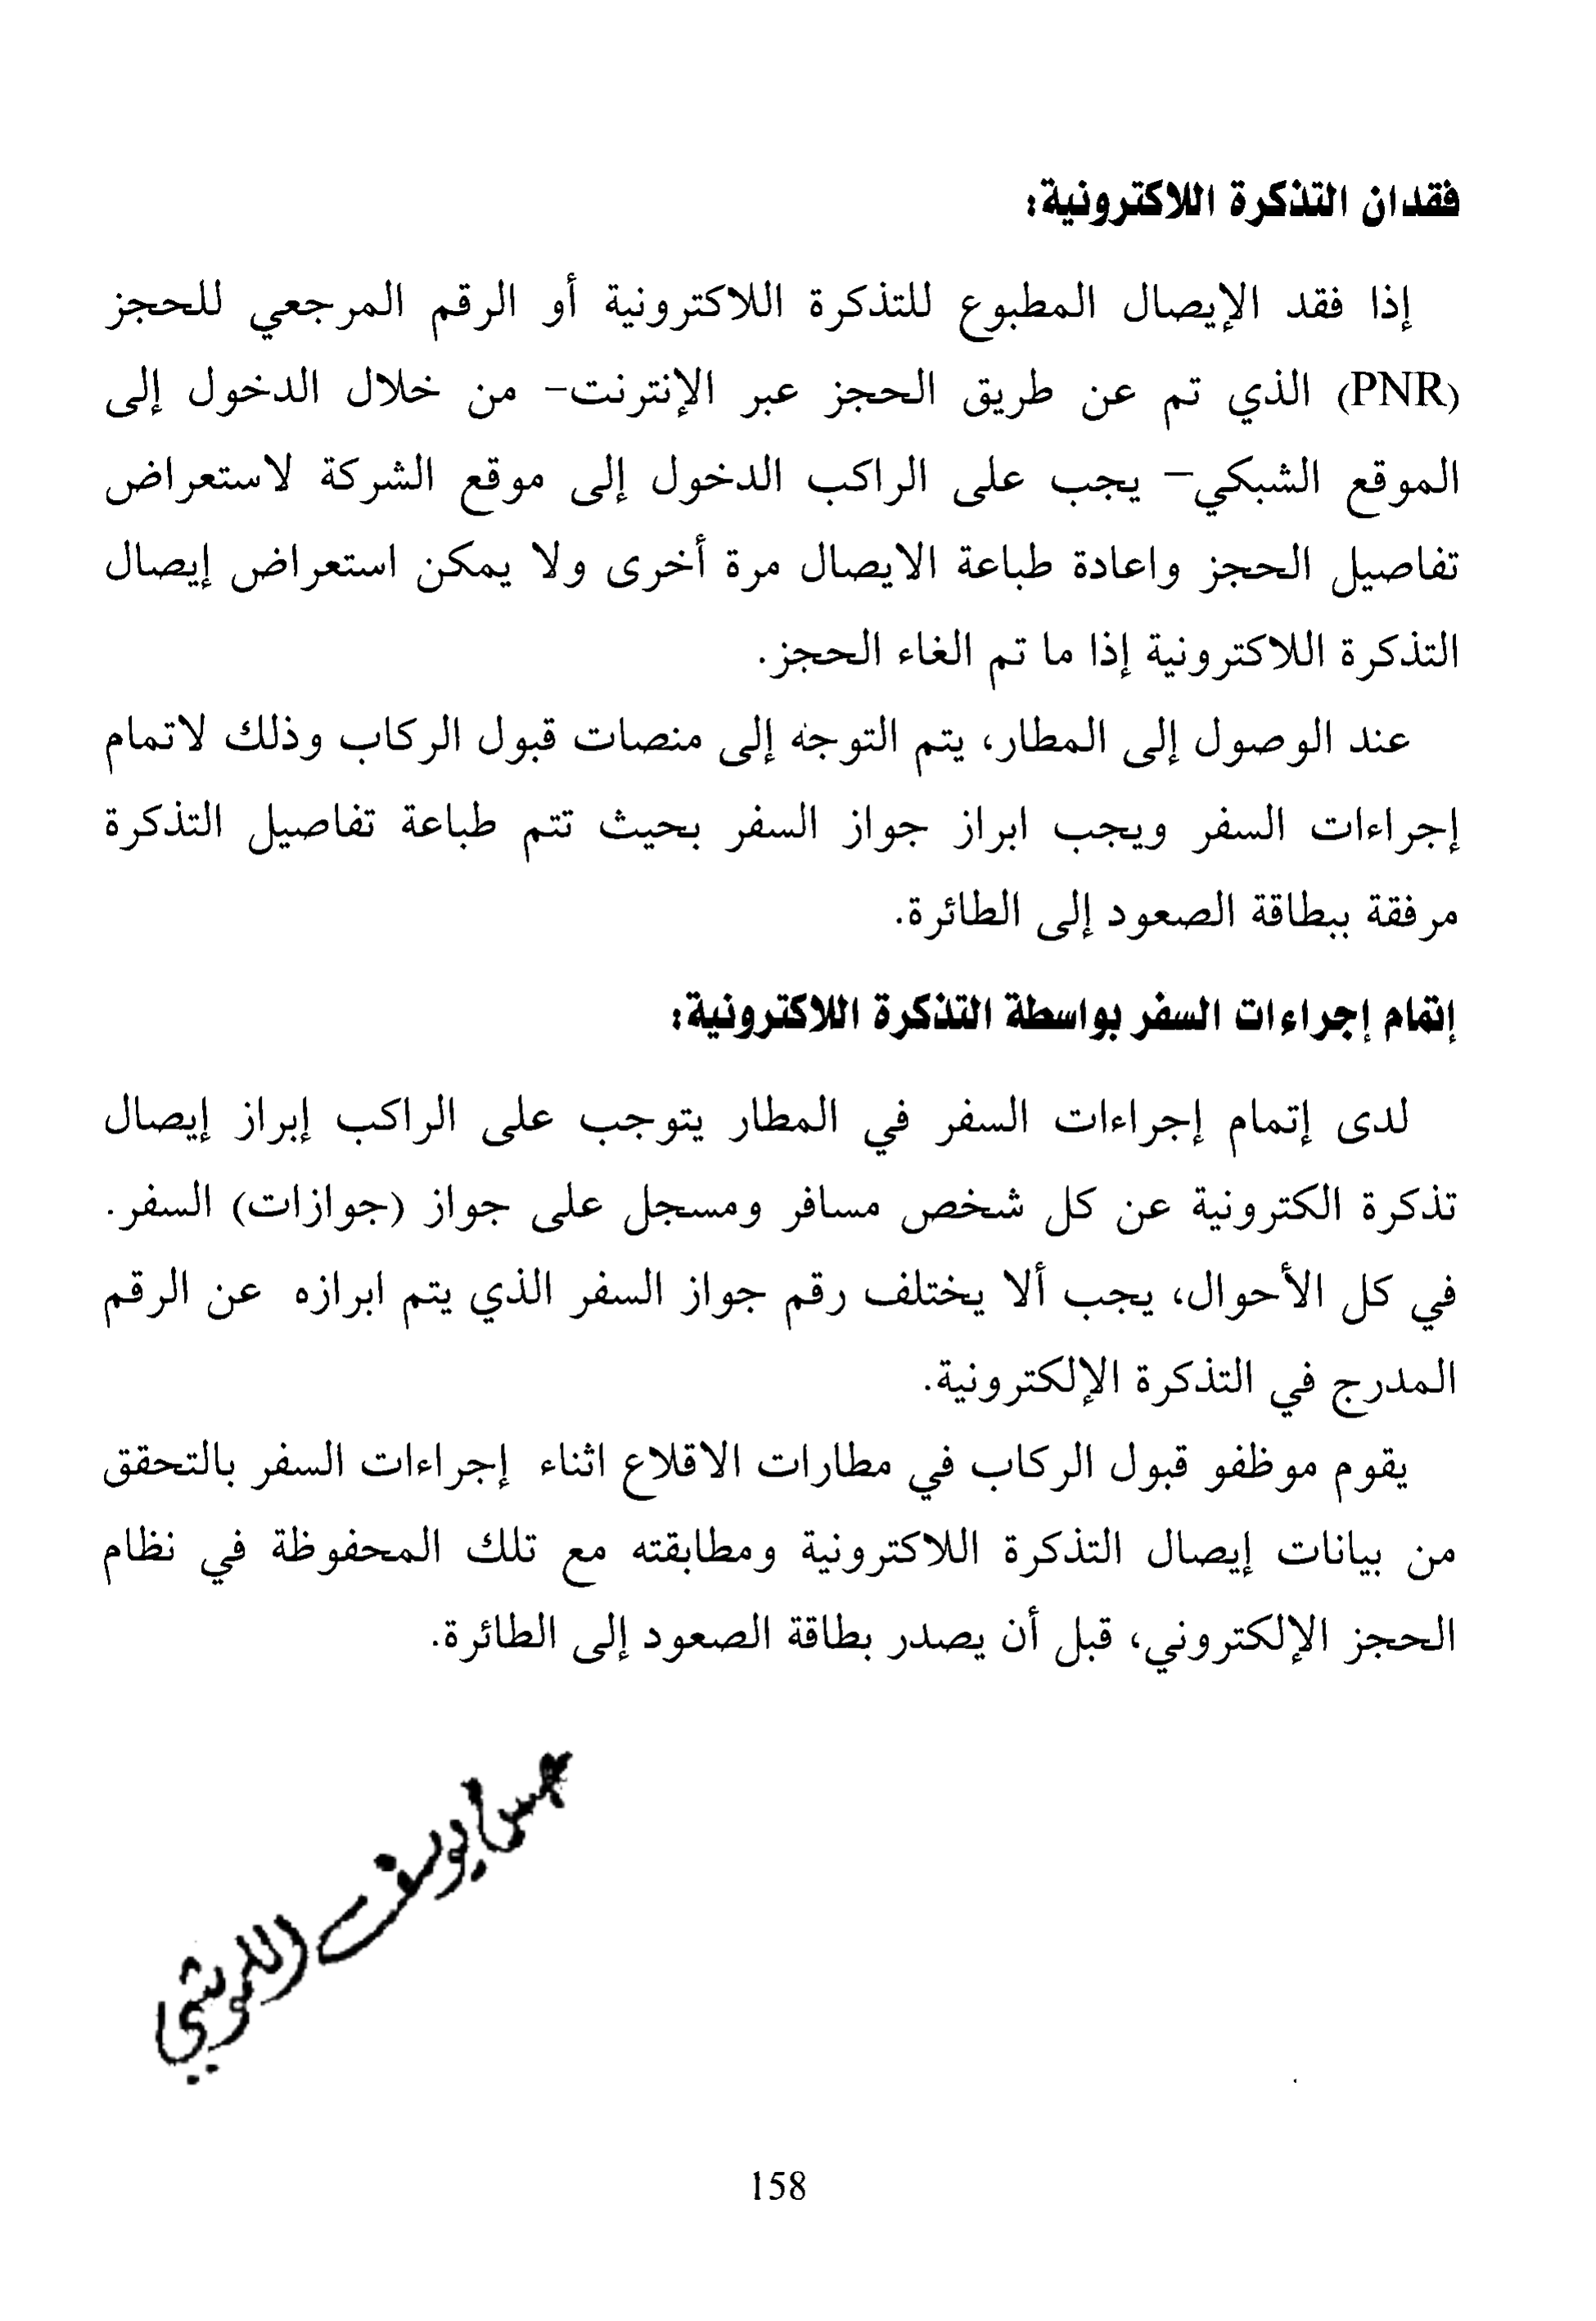 فقدان التذكرة اللاكترونية:
إذا فقد الإيصال المطبوع للتذكرة اللاكترونية أو الرقم المرجعي للحجز
(PNR) الذي تم عن طريق الحجز عبر الإنترنت– من خلال الدخول إلى
الموقع الشبكي– يجب على الراكب الدخول إلى موقع الشركة لاستعراض
تفاصيل الحجز واعادة طباعة الايصال مرة أخرى ولا يمكن استعراض إيصال
التذكرة اللاكترونية إذا ما تم الغاء الحجز.
عند الوصول إلى المطار، يتم التوجه إلى منصات قبول الركاب وذلك لاتمام
إجراءات السفر ويجب ابراز جواز السفر بحيث تتم طباعة تفاصيل التذكرة
مرفقة ببطاقة الصعود إلى الطائرة.
إتمام إجراءات السفر بواسطة التذكرة اللاكترونية:
لدى إتمام إجراءات السفر في المطار يتوجب على الراكب إبراز إيصال
تذكرة الكترونية عن كل شخص مسافر ومسجل على جواز (جوازات) السفر.
في كل الأحوال، يجب ألا يختلف رقم جواز السفر الذي يتم ابرازه عن الرقم
المدرج في التذكرة الإلكترونية.
يقوم موظفو قبول الركاب في مطارات الاقلاع اثناء إجراءات السفر بالتحقق
من بيانات إيصال التذكرة اللاكترونية ومطابقته مع تلك المحفوظة في نظام
الحجز الإلكتروني، قبل أن يصدر بطاقة الصعود إلى الطائرة.
يوسف
158